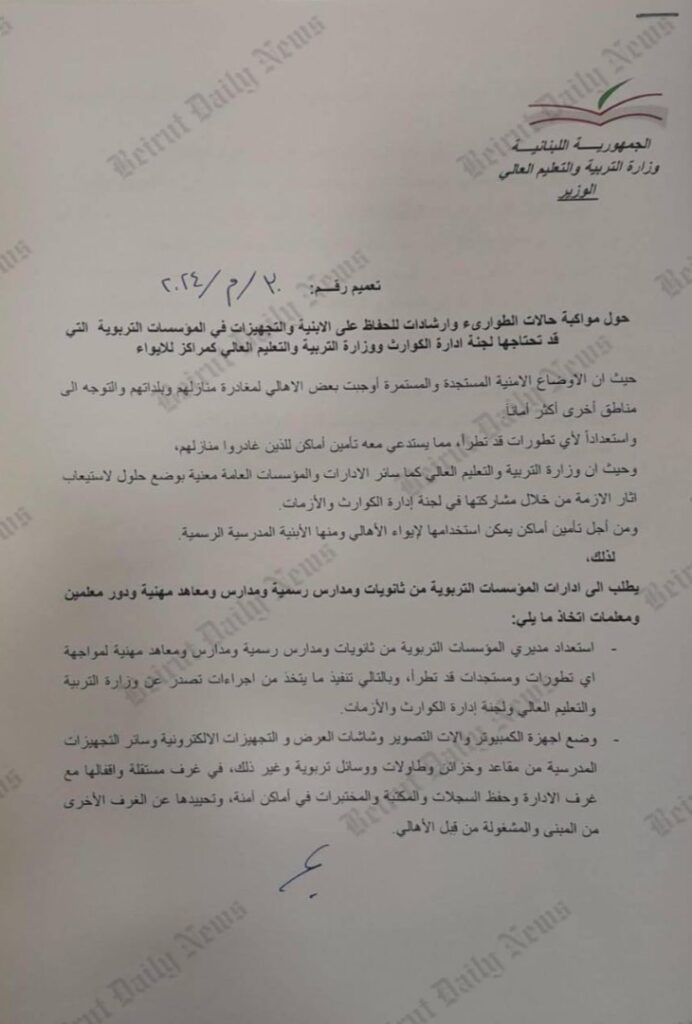 الجمهوريـــة اللبنانيـــة
وزارة التربية والتعليم العالي
الوزير
تعميم رقـــم: ٣٠/م/٢٠٢٤
حول مواكبة حالات الطوارىء وارشادات للحفاظ على الابنية والتجهيزات في المؤسسات التربوية التي
قد تحتاجها لجنة ادارة الكوارث ووزارة التربية والتعليم العالي كمراكز للايواء
حيث ان الأوضاع الامنية المستجدة والمستمرة أوجبت بعض الاهالي لمغادرة منازلهم وبلداتهم والتوجه الى
مناطق أخرى أكثر أماناً.
واستعداداً لأي تطورات قد تطرأ، مما يستدعي معه تأمين أماكن للذين غادروا منازلهم،
وحيث ان وزارة التربية والتعليم العالي كما سائر الادارات والمؤسسات العامة معنية بوضع حلول لاستيعاب
اثار الازمة من خلال مشاركتها في لجنة إدارة الكوارث والأزمات.
ومن أجل تأمين أماكن يمكن استخدامها لإيواء الأهالي ومنها الأبنية المدرسية الرسمية.
لذلك،
يطلب الى ادارات المؤسسات التربوية من ثانويات ومدارس رسمية ومدارس ومعاهد مهنية ودور معلمين
ومعلمات اتخاذ ما يلي:
- استعداد مديري المؤسسات التربوية من ثانويات ومدارس رسمية ومدارس ومعاهد مهنية لمواجهة
اي تطورات ومستجدات قد تطرأ، وبالتالي تنفيذ ما يتخذ من اجراءات تصدر عن وزارة التربية
والتعليم العالي ولجنة إدارة الكوارث والأزمات.
- وضع اجهزة الكمبيوتر والات التصوير وشاشات العرض و التجهيزات الالكترونية وسائر التجهيزات
المدرسية من مقاعد وخزائن وطاولات ووسائل تربوية وغير ذلك، في غرف مستقلة واقفالها مع
غرف الادارة وحفظ السجلات والمكتبة والمختبرات في أماكن آمنة، وتحييدها عن الغرف الأخرى
من المبنى والمشغولة من قبل الأهالي.
Beirut Daily News